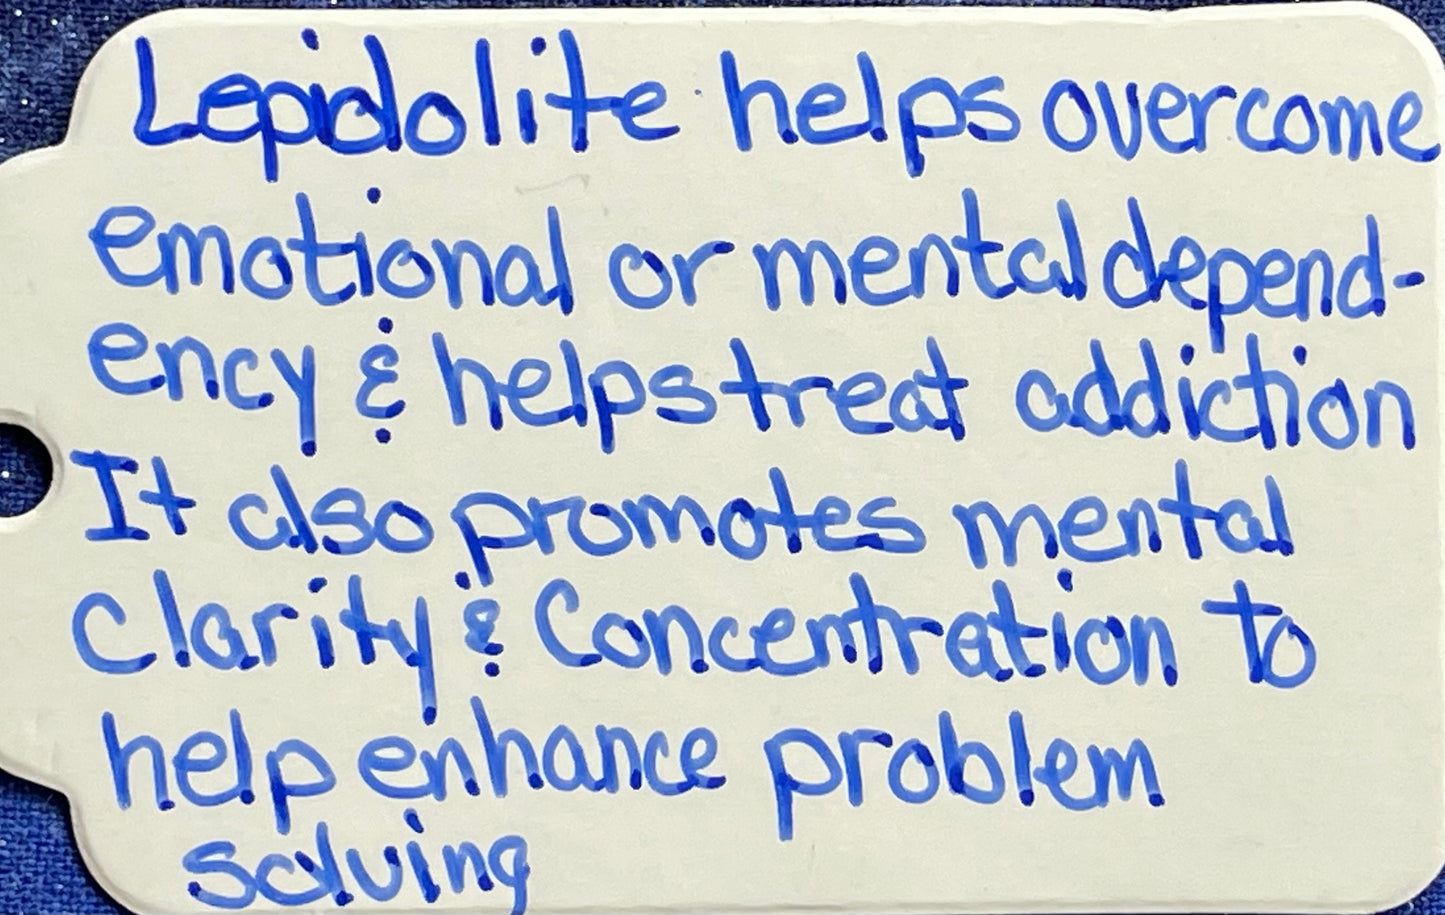 Lepidolite helps overcome
emotional or mental depend-
ency & helps treat addiction
It also promotes mental
clarity & Concentration to
help enhance problem
solving